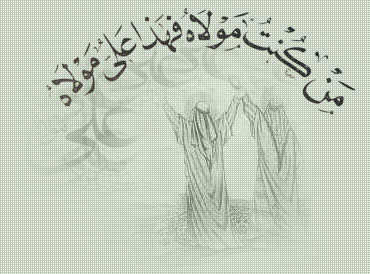 مَنْ كُنْتُ مَوْلَاهُ فَهَذَا عَلِيٌّ مَوْلَاهُ
علي